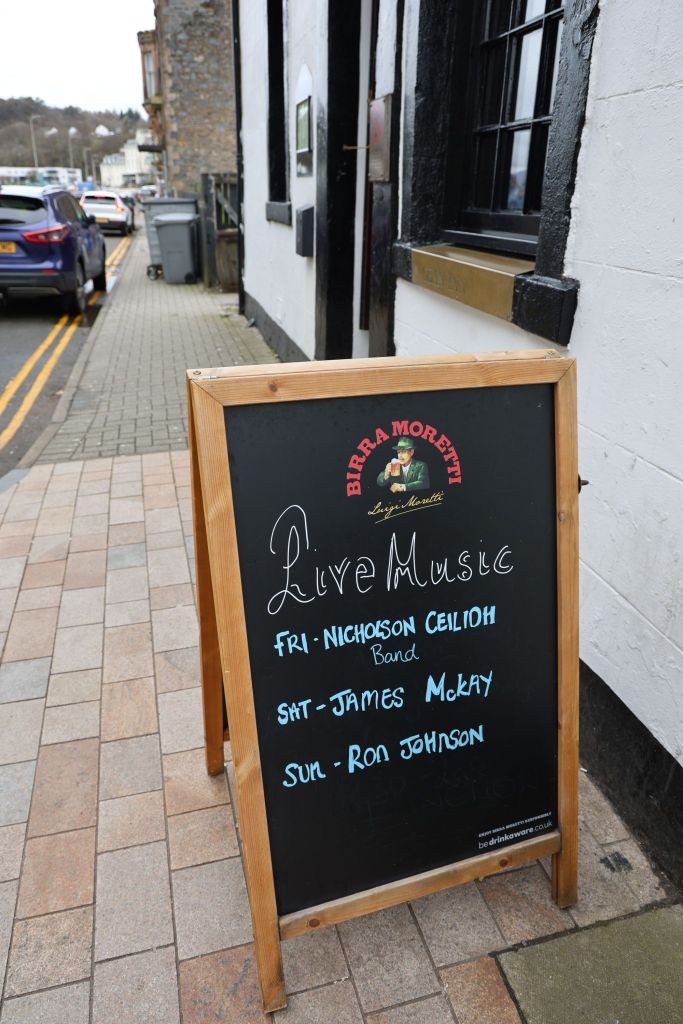 BIRRA MORETTI
Luigi Moretti
Live Music
FRI - NICHOLSON CEILIDH
Band
SAT - JAMES McKAY
SUN - RON JOHNSON
ENJOY BIRRA MORETTI RESPONSIBLY
bedrinkaware.co.uk